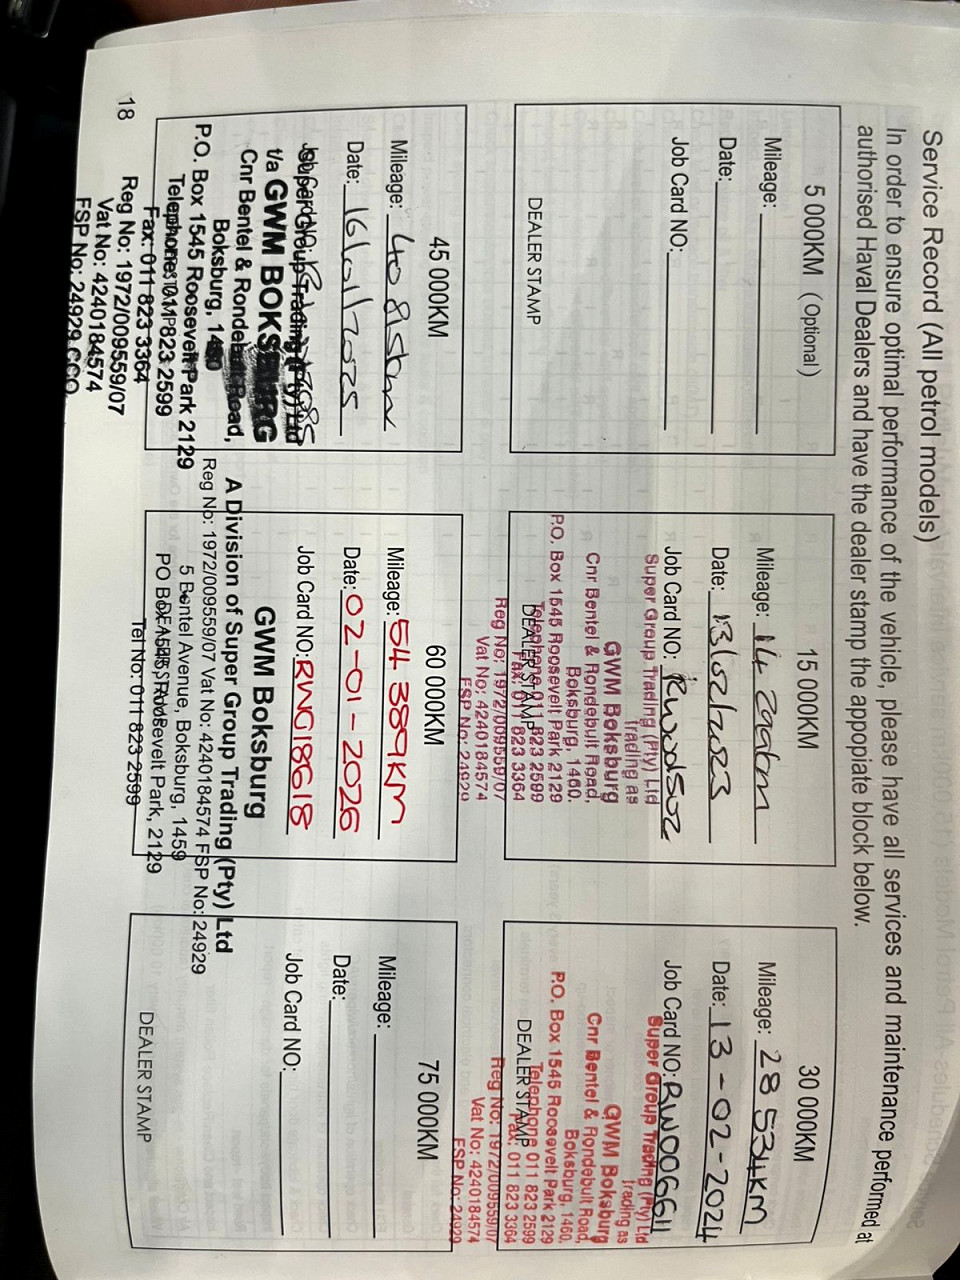 Service Record (All petrol models)
In order to ensure optimal performance of the vehicle, please have all services and maintenance performed at
authorised Haval Dealers and have the dealer stamp the appopiate block below.
5 000KM (Optional)
Mileage:
Date:
Job Card NO:
DEALER STAMP
15 000KM
Mileage: 14
Date: 13/02/2023
Job Card NO:
Super Group Trading (Pty) Ltd
Trading as
GWM Boksburg
Cnr Bentel & Rondebult Road,
Boksburg, 1460.
P.O. Box 1545 Roosevelt Park 2129
Telephone 011 823 2599
DEALER STAMP
Fax: 011 823 3364
Reg No: 1972/009559/07
Vat No: 4240184574
FSP No: 24929
30 000KM
Mileage: 28 534KM
Date: 13-02-2024
Job Card NO: RW006611
Super Group Trading (Pty) Ltd
Trading as
GWM Boksburg
Cnr Bentel & Rondebult Road,
Boksburg, 1460.
P.O. Box 1545 Roosevelt Park 2129
Telephone 011 823 2599
DEALER STAMP
Fax: 011 823 3364
Reg No: 1972/009559/07
Vat No: 4240184574
FSP No: 24929
45 000KM
Mileage: 40 815km
Date: 16/01/2025
Job Card NO:
Super Group Trading (Pty) Ltd
t/a GWM BOKSBURG
Cnr Bentel & Rondebult Road,
Boksburg,
P.O. Box 1545 Roosevelt Park 2129
Telephone: 011 823 2599
Fax: 011 823 3364
Reg No: 1972/009559/07
Vat No: 4240184574
FSP No: 24929
60 000KM
Mileage: 54 389KM
Date: 02-01-2026
Job Card NO: RWG18618
GWM Boksburg
A Division of Super Group Trading (Pty) Ltd
Reg No: 1972/009559/07 Vat No: 4240184574 FSP No: 24929
5 Bentel Avenue, Boksburg, 1459
PO Box 1545 Roosevelt Park, 2129
DEALER STAMP
Tel No: 011 823 2599
75 000KM
Mileage:
Date:
Job Card NO:
DEALER STAMP
18